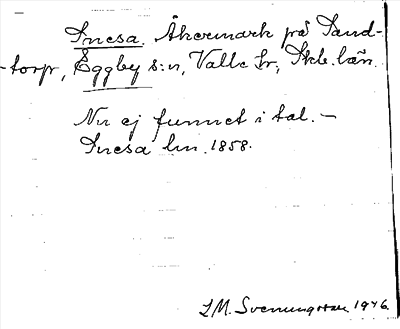 Snesa. Åkermark på Sand-
-torp, Eggby s:n, Valle hr, Skb. län.
Nu ej funnet i tal. -
Snesa lm. 1858.
S.M. Svenungsson 1946.